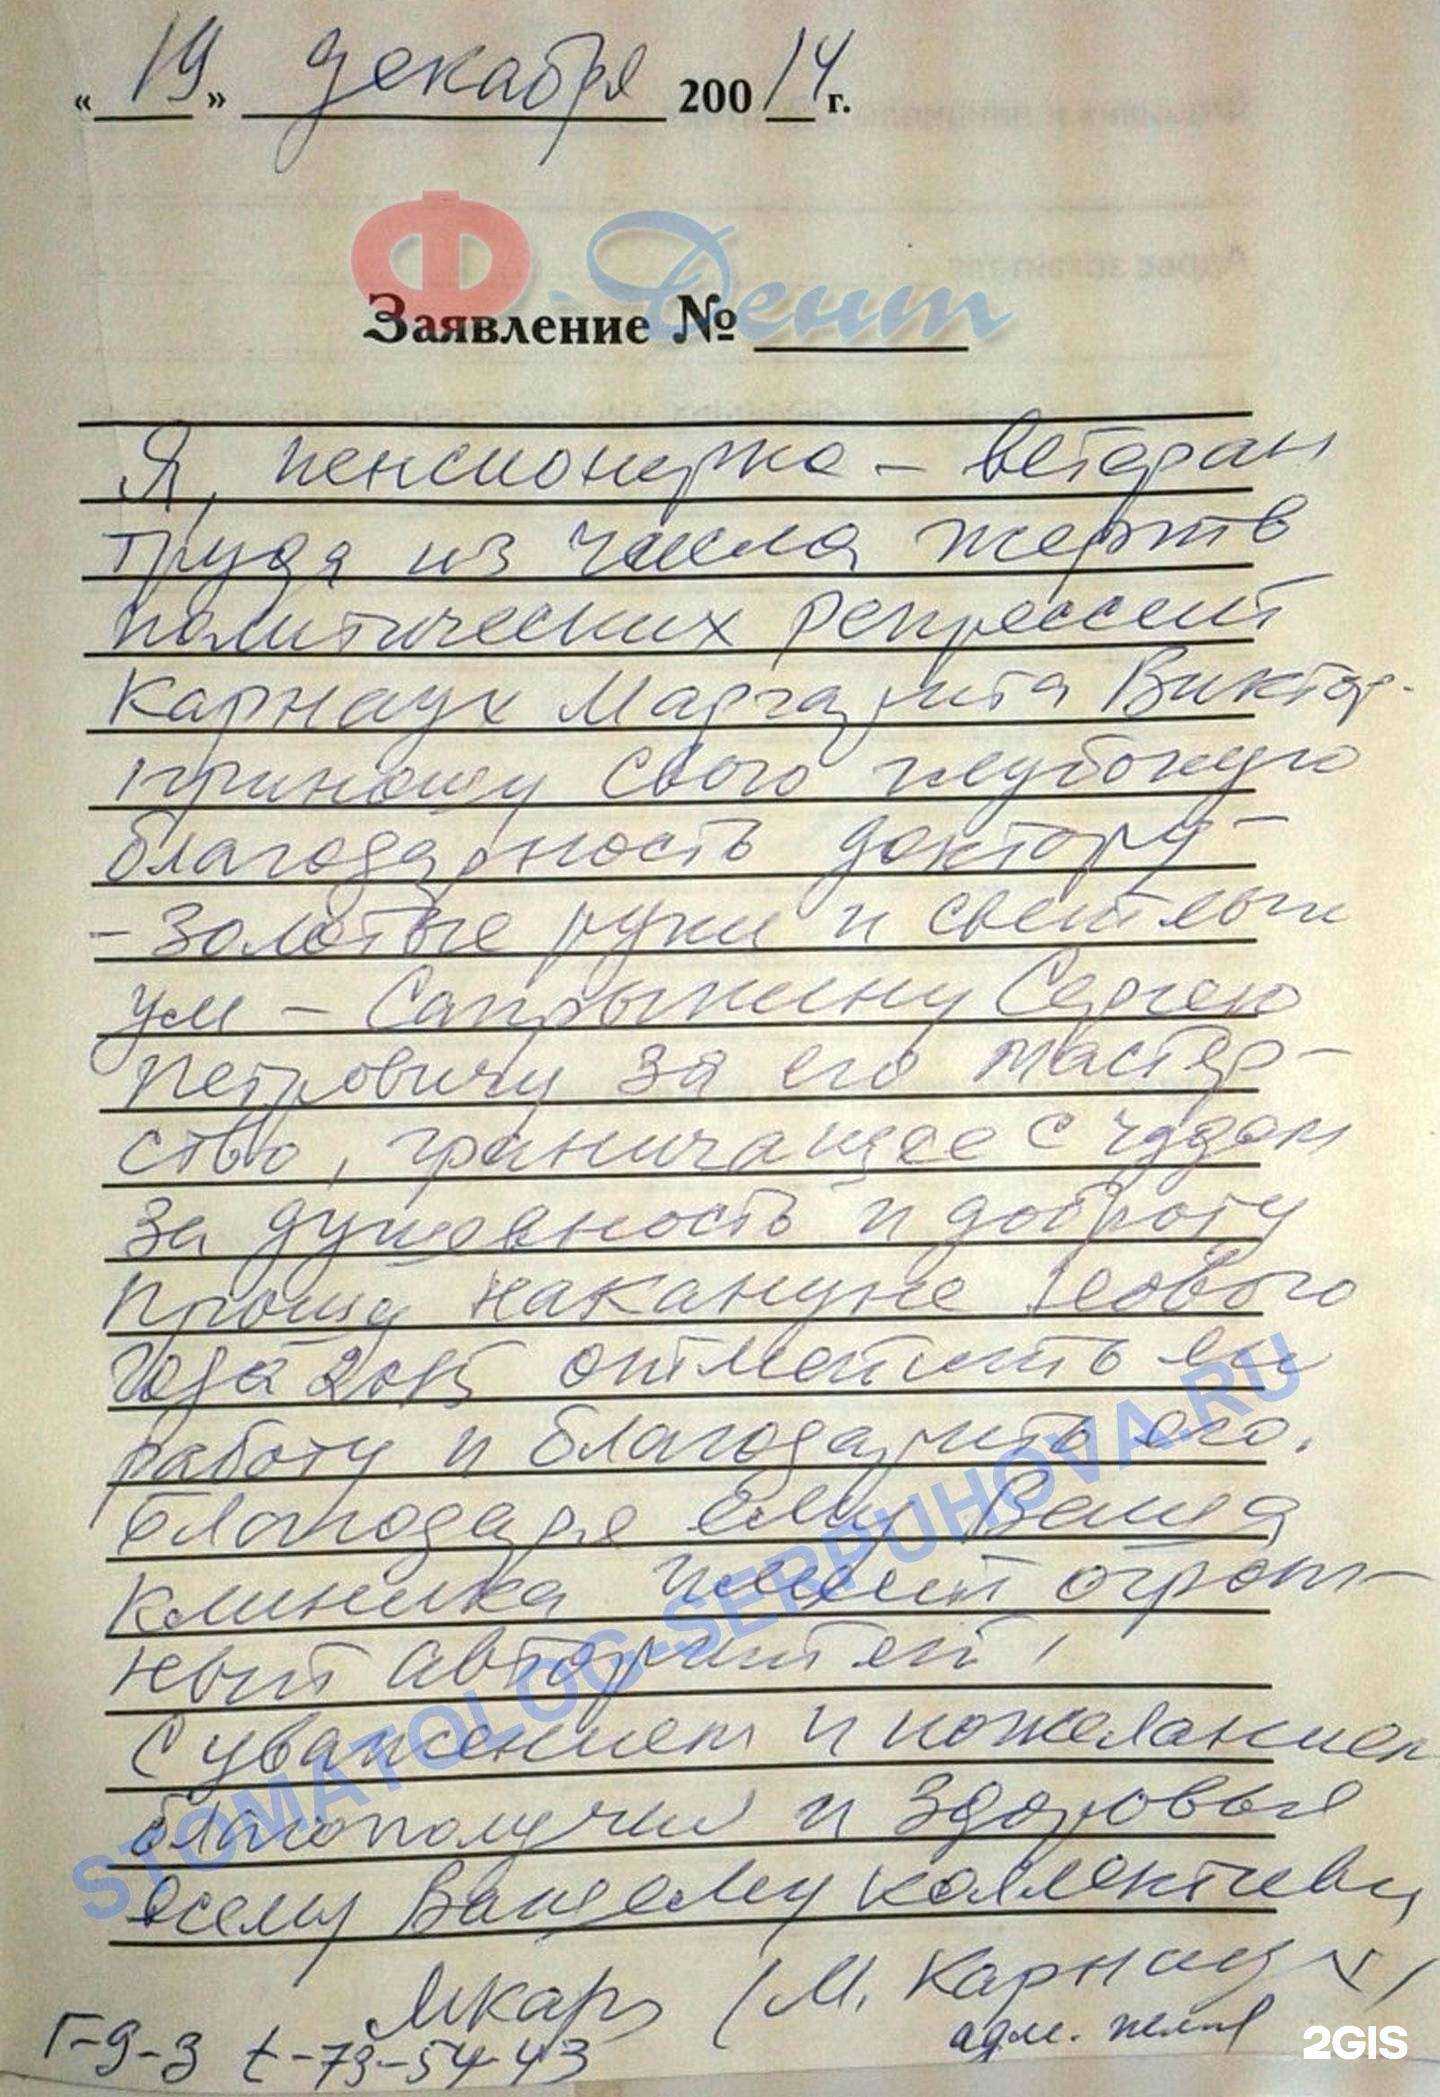 « 19 » декабря 200 14 г.
Ф-Дент
Заявление №
Я, пенсионерка – ветеран
труда из числа жертв
политических репрессий
Карнаух Маргарита Виктор.
приношу свою глубокую
благодарность доктору –
– золотые руки и светлый
ум – Сапрыкину Сергею
Петровичу за его мастер–
ство, граничащее с чудом
за душевность и доброту
Прошу накануне Нового
года 2015 отметить его
работу и благодарить его.
Благодаря ему Ваша
клиника имеет огром–
ный авторитет!
С уважением и пожеланием
благополучия и здоровья
всему Вашему коллективу
(М. Карнаух)
Г-9-3 t-73-54-43
STOMATOLOG-SERPUHOVA.RU
2GIS